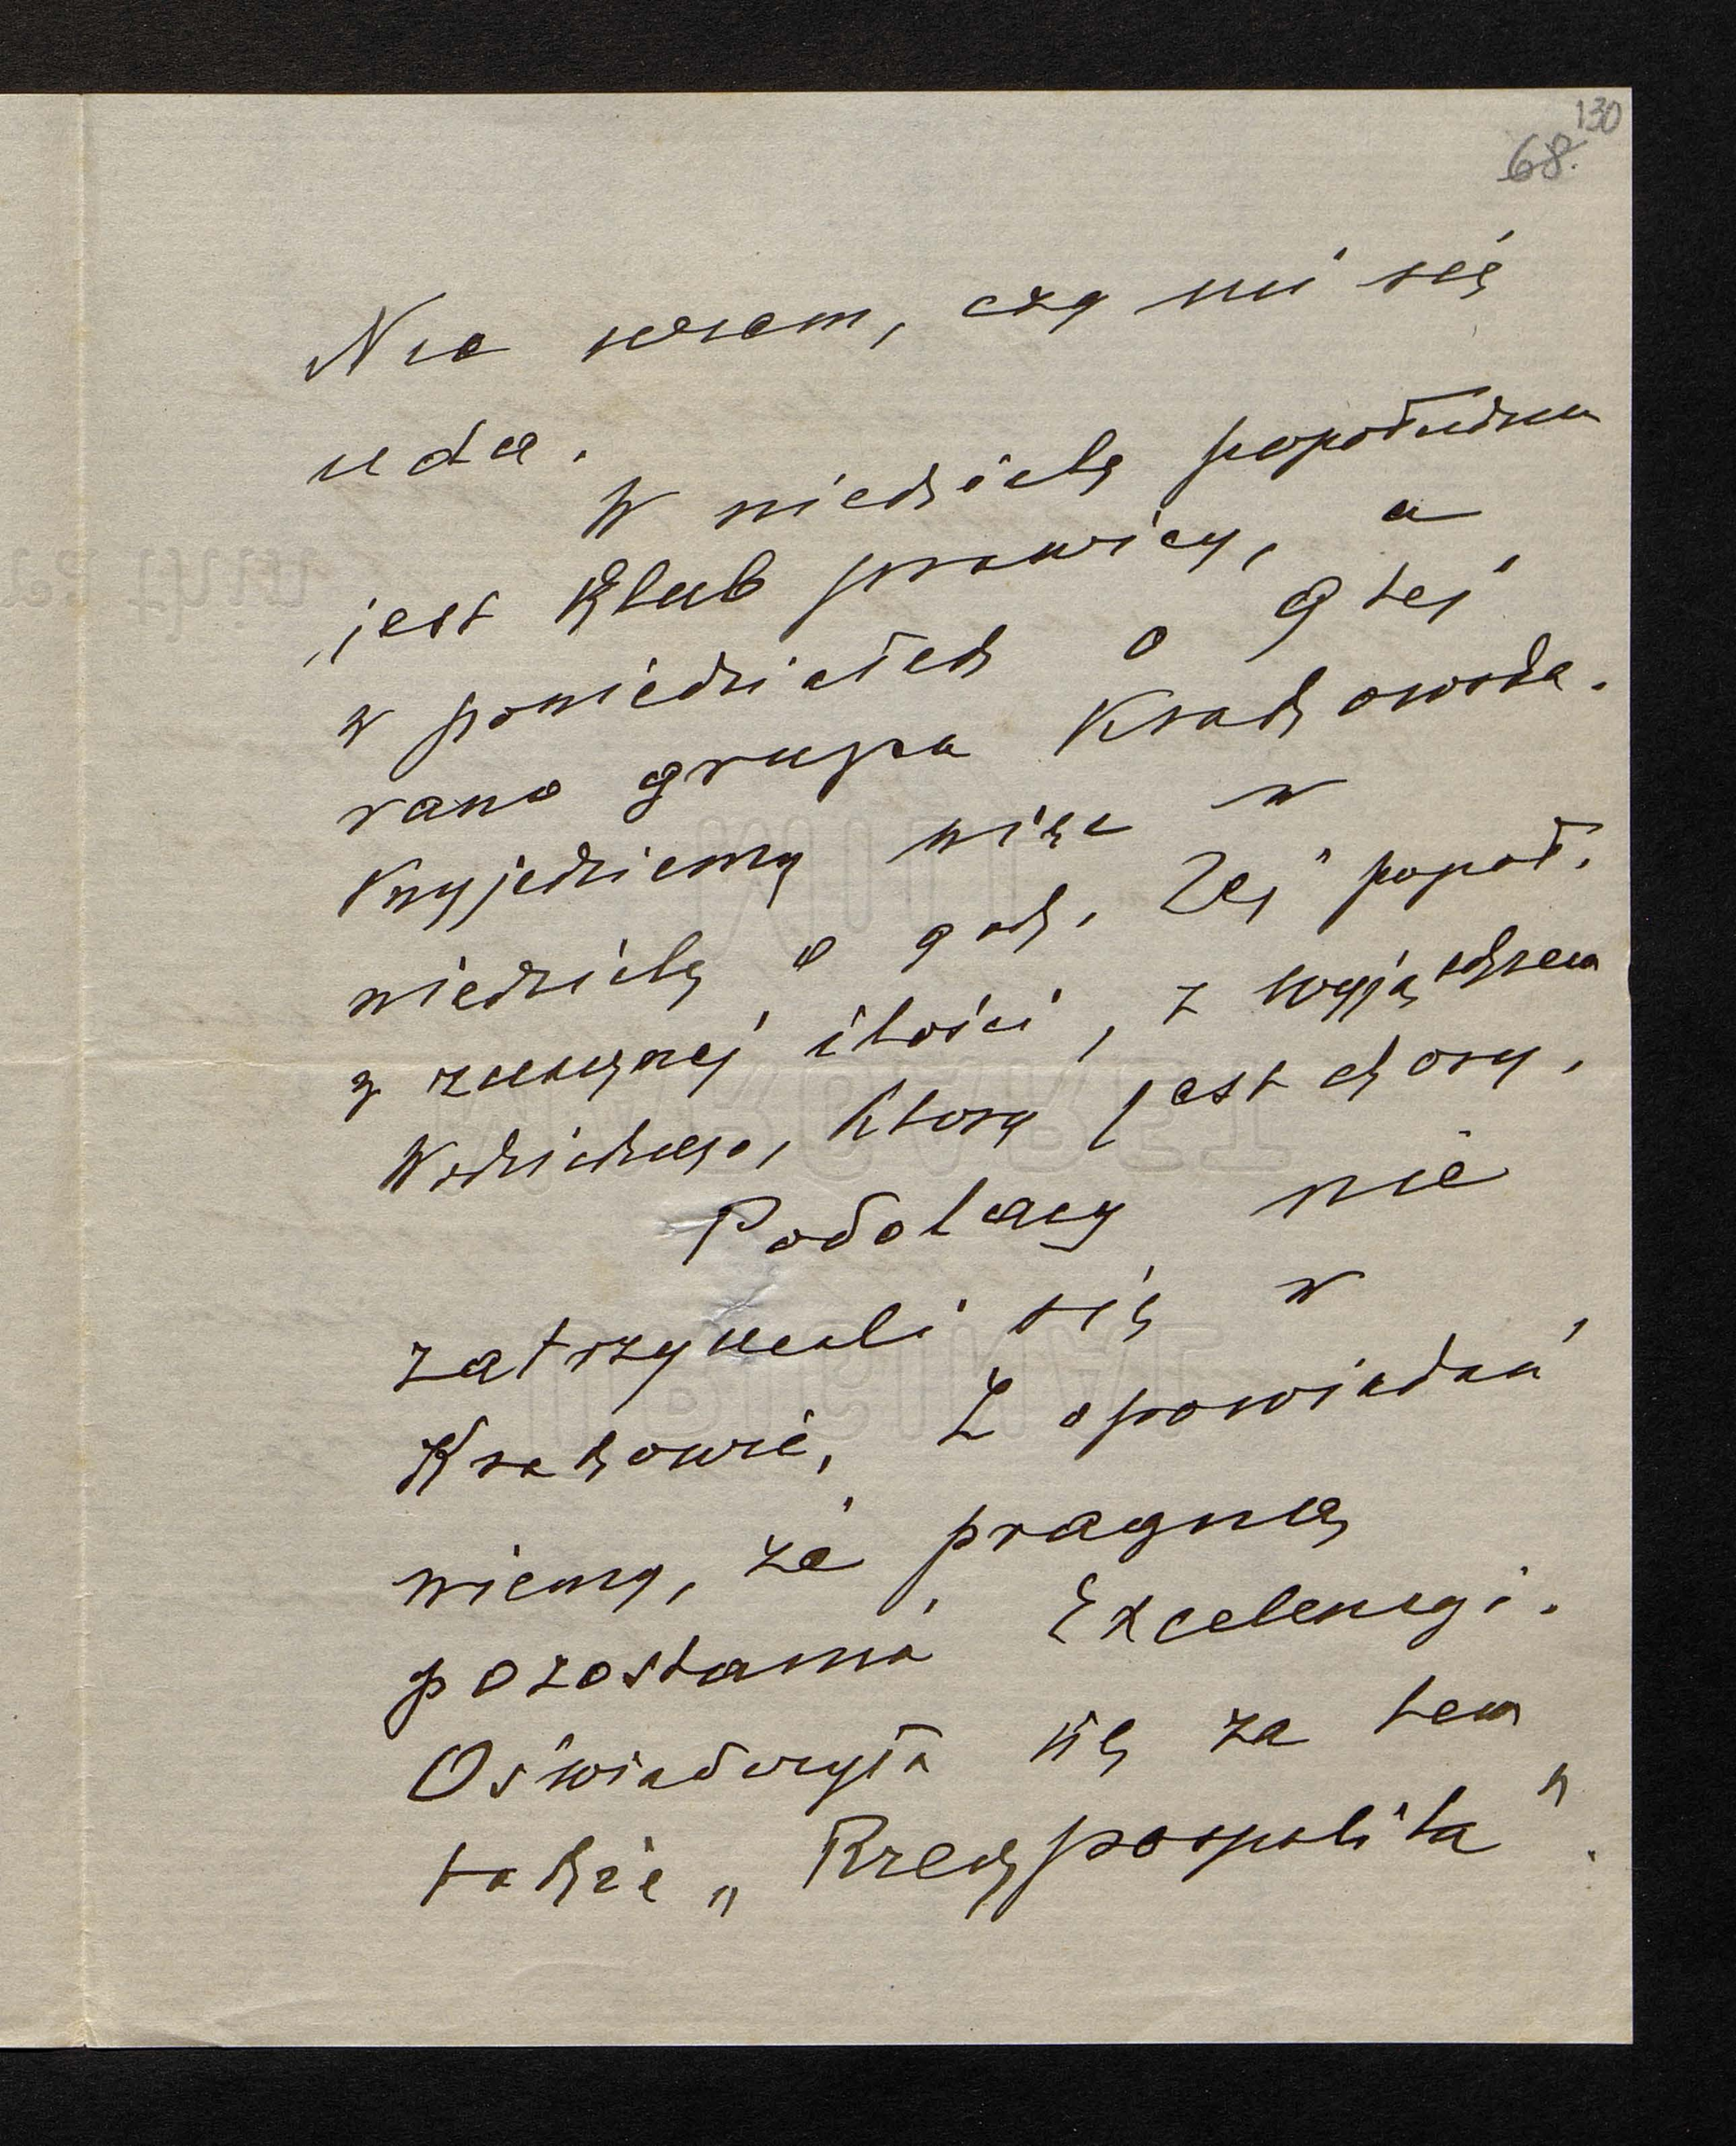 130
68.
Nie wiem, czy mi się
uda.
W niedzielę popołudniu
jest Klub prawicy, a
w poniedziałek o 9tej
rano grupa Krakowska.
Przyjedziemy więc w
niedzielę o godz. 2ej popoł.
w znacznej ilości, z wyjątkiem
Wodzickiego, który jest chory.
Podolacy nie
zatrzymali się w
Krakowie. Z opowiadań
wiemy, że pragną
pozostania Excelencyi.
Oświadczyła się za tem
także „Rzeczpospolita".